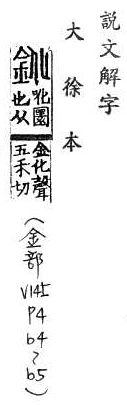 說文解字
大徐本
鈋 吪圜
也从
金化聲
五禾切
(金部 V14上 P4 b4~b5)